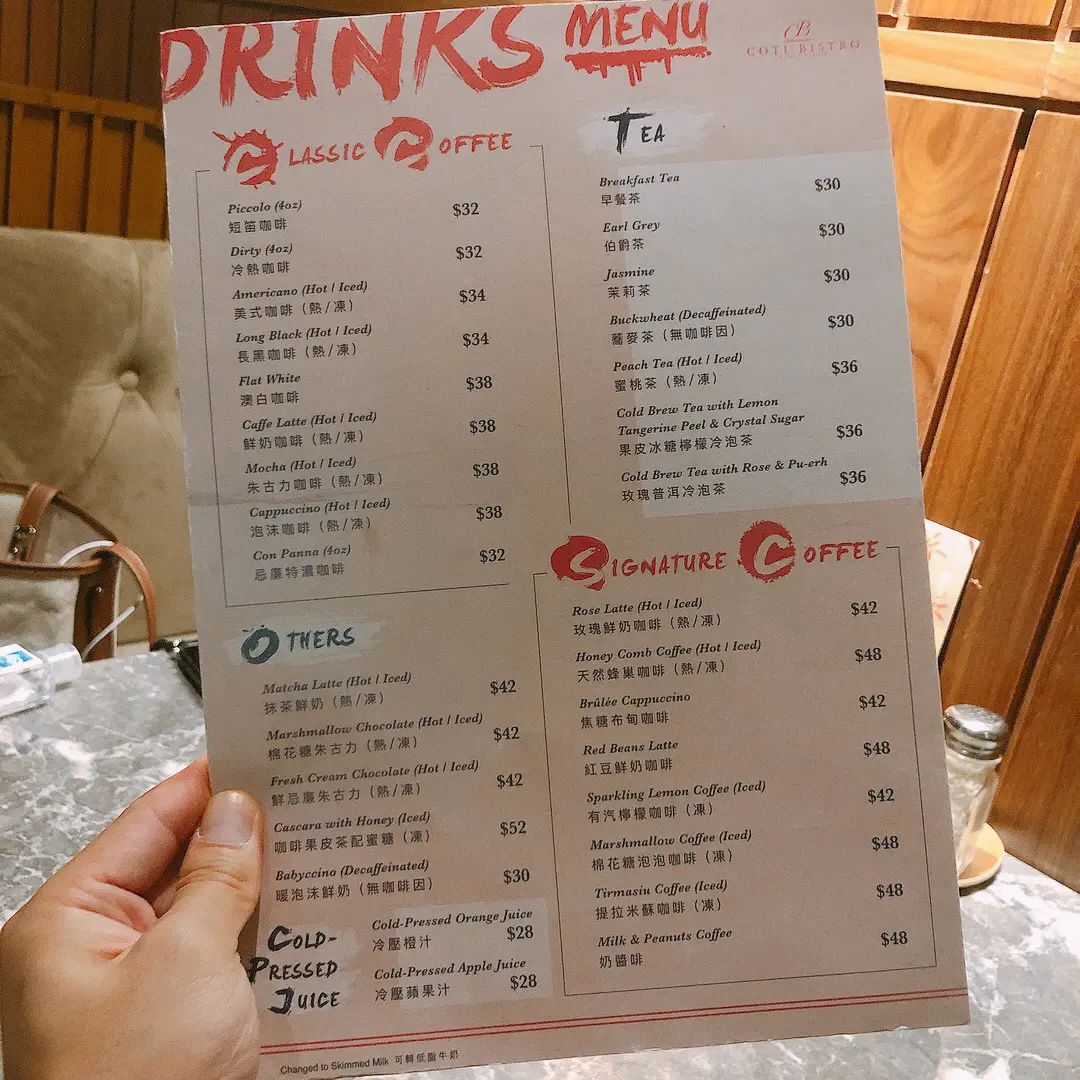 DRINKS MENU
COTI BISTRO
CLASSIC COFFEE
Piccolo (4oz) $32
短笛咖啡
Dirty (4oz) $32
冷熱咖啡
Americano (Hot / Iced) $34
美式咖啡（熱/凍）
Long Black (Hot / Iced) $34
長黑咖啡（熱/凍）
Flat White $38
澳白咖啡
Caffe Latte (Hot / Iced) $38
鮮奶咖啡（熱/凍）
Mocha (Hot / Iced) $38
朱古力咖啡（熱/凍）
Cappuccino (Hot / Iced) $38
泡沫咖啡（熱/凍）
Con Panna (4oz) $32
忌廉特濃咖啡
OTHERS
Matcha Latte (Hot / Iced) $42
抹茶鮮奶（熱/凍）
Marshmallow Chocolate (Hot / Iced) $42
棉花糖朱古力（熱/凍）
Fresh Cream Chocolate (Hot / Iced) $42
鮮忌廉朱古力（熱/凍）
Cascara with Honey (Iced) $52
咖啡果皮茶配蜜糖（凍）
Babyccino (Decaffeinated) $30
暖泡沫鮮奶（無咖啡因）
COLD-
PRESSED
JUICE
Cold-Pressed Orange Juice
冷壓橙汁 $28
Cold-Pressed Apple Juice
冷壓蘋果汁 $28
TEA
Breakfast Tea $30
早餐茶
Earl Grey $30
伯爵茶
Jasmine $30
茉莉茶
Buckwheat (Decaffeinated) $30
蕎麥茶（無咖啡因）
Peach Tea (Hot / Iced) $36
蜜桃茶（熱/凍）
Cold Brew Tea with Lemon
Tangerine Peel & Crystal Sugar $36
果皮冰糖檸檬冷泡茶
Cold Brew Tea with Rose & Pu-erh $36
玫瑰普洱冷泡茶
SIGNATURE COFFEE
Rose Latte (Hot / Iced) $42
玫瑰鮮奶咖啡（熱/凍）
Honey Comb Coffee (Hot / Iced) $48
天然蜂巢咖啡（熱/凍）
Brûlée Cappuccino $42
焦糖布甸咖啡
Red Beans Latte $48
紅豆鮮奶咖啡
Sparkling Lemon Coffee (Iced) $42
有汽檸檬咖啡（凍）
Marshmallow Coffee (Iced) $48
棉花糖泡泡咖啡（凍）
Tirmasiu Coffee (Iced) $48
提拉米蘇咖啡（凍）
Milk & Peanuts Coffee $48
奶醬啡
Changed to Skimmed Milk 可轉低脂牛奶